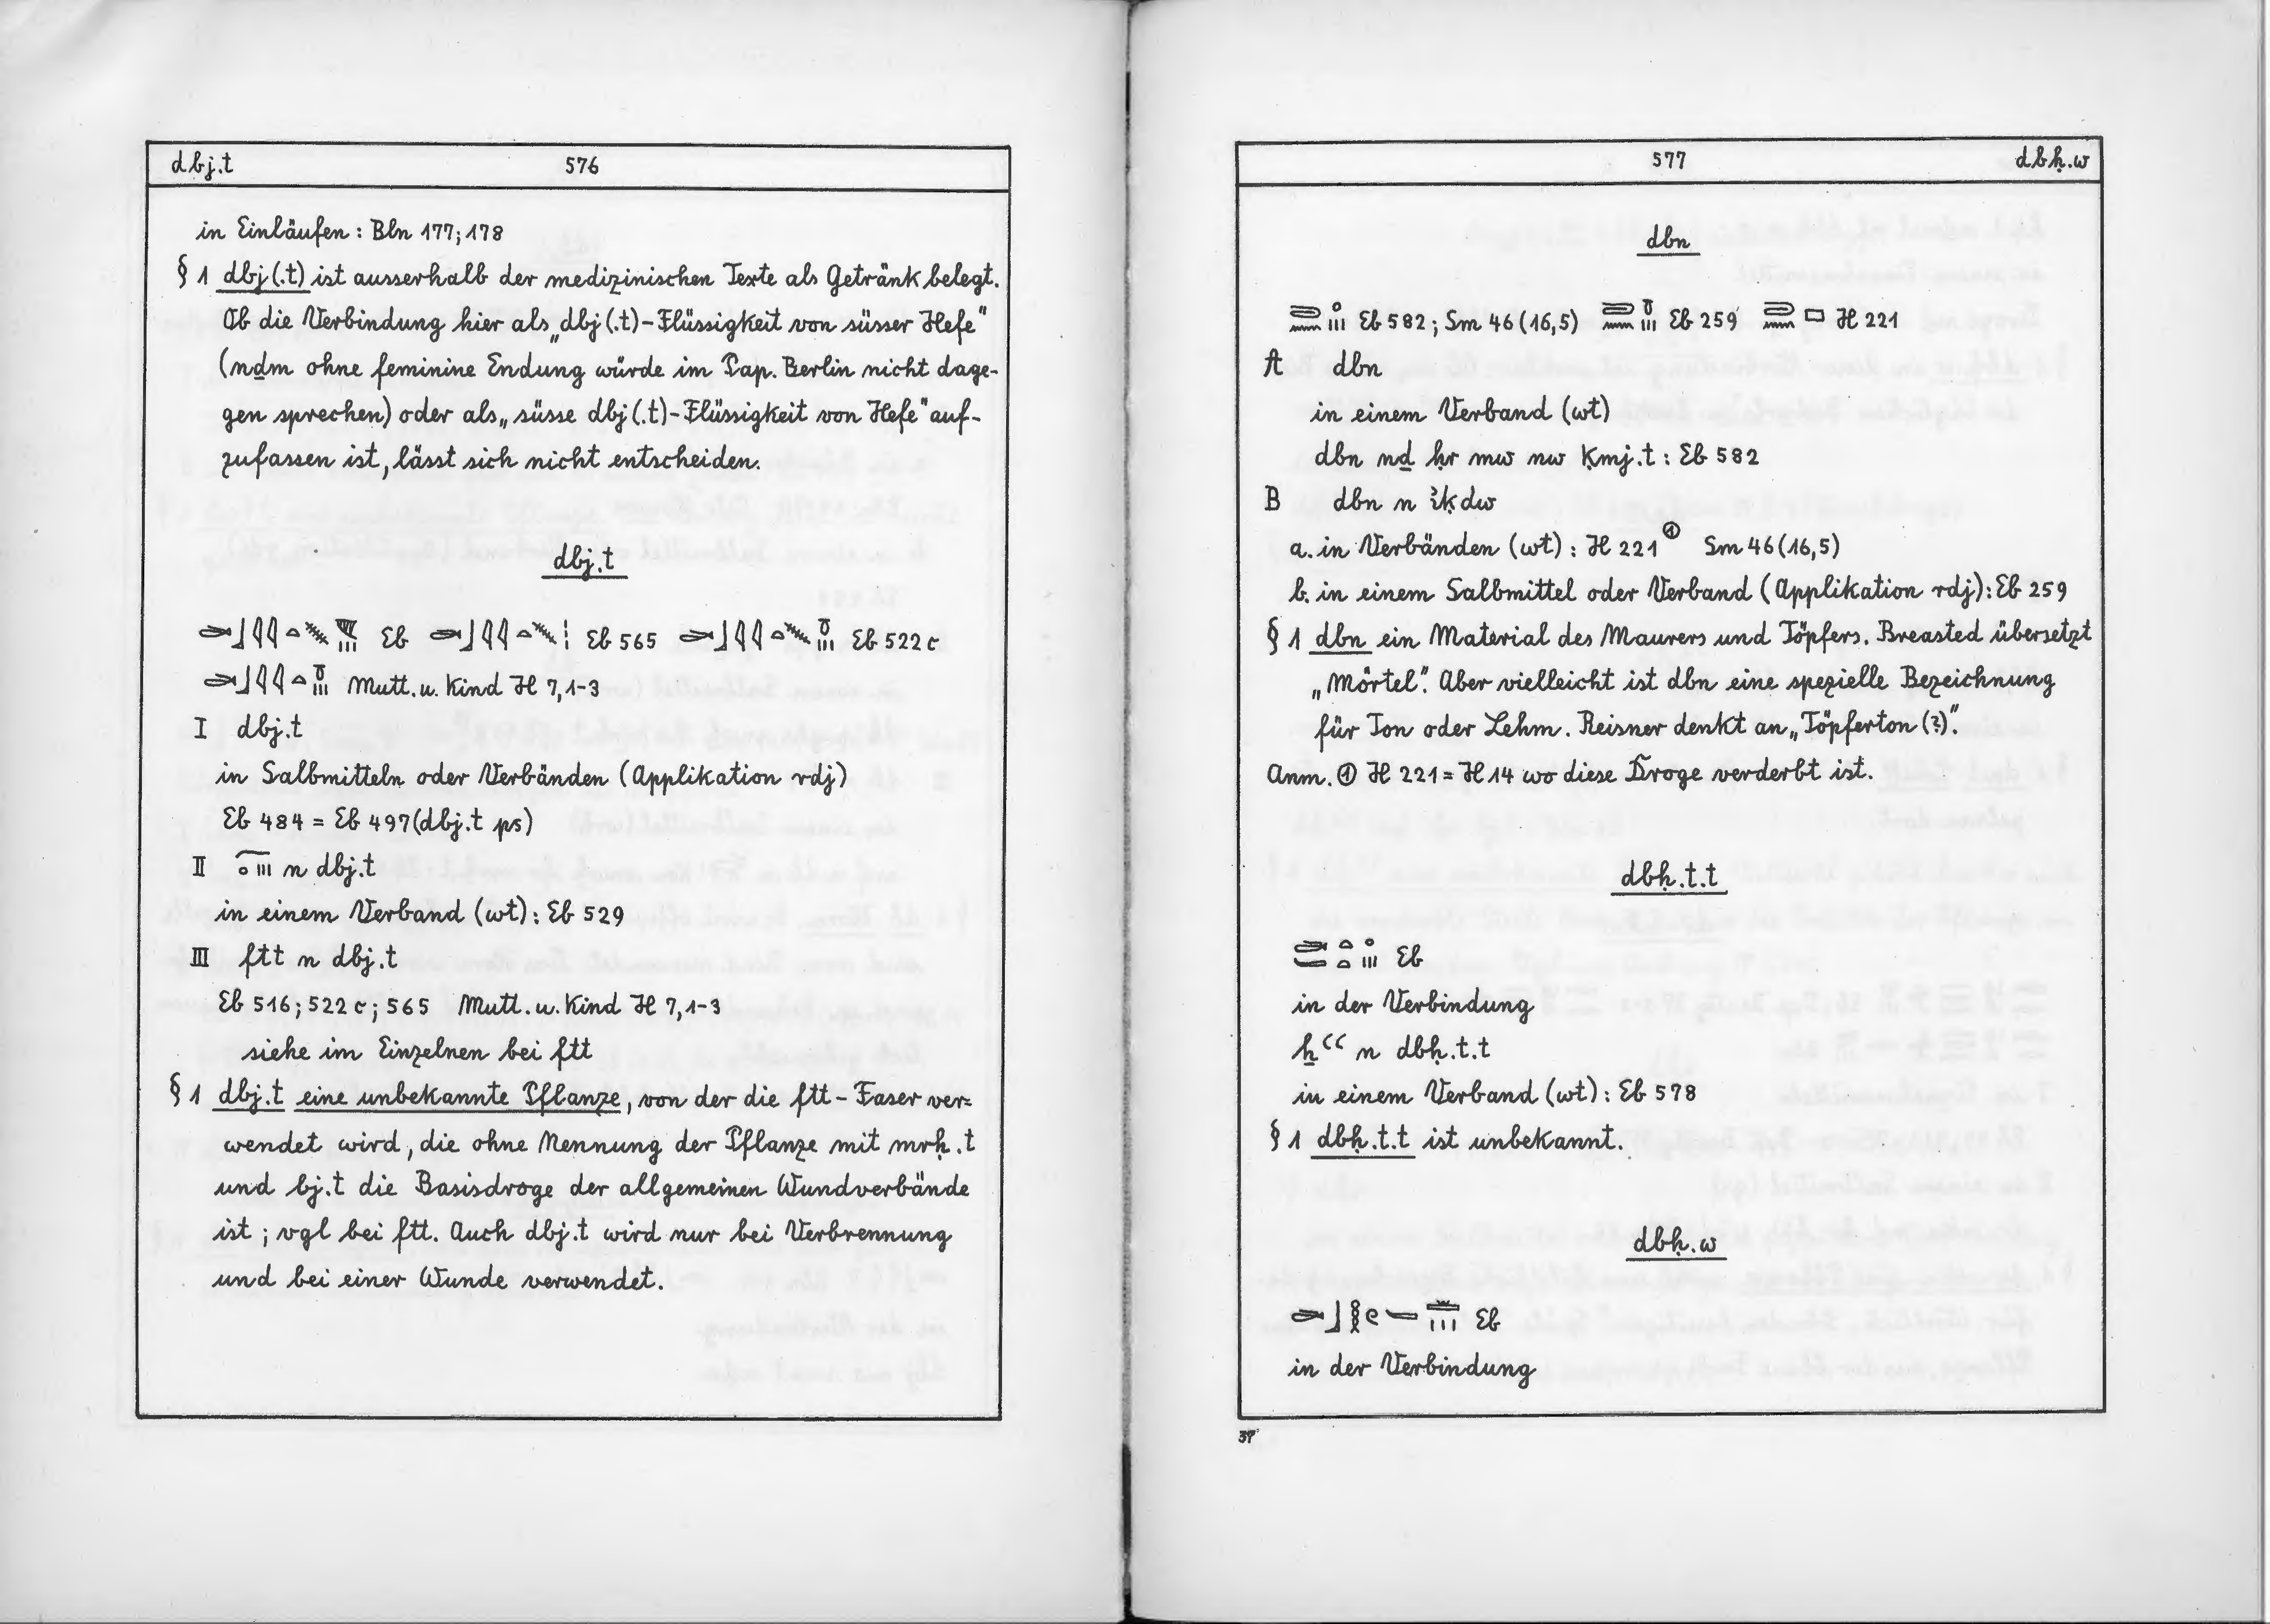 dbj.t 576
in Einläufen : Bln 177; 178
§ 1 dbj(.t) ist ausserhalb der medizinischen Texte als Getränk belegt.
Ob die Verbindung hier als „dbj(.t)-Flüssigkeit von süsser Hefe"
(nḏm ohne feminine Endung würde im Pap. Berlin nicht dage-
gen sprechen) oder als „süsse dbj(.t)-Flüssigkeit von Hefe" auf-
zufassen ist, lässt sich nicht entscheiden.
dbj.t
Eb Eb 565 Eb 522 c
Mutt. u. Kind H 7,1-3
I dbj.t
in Salbmitteln oder Verbänden (Applikation rdj)
Eb 484 = Eb 497 (dbj.t ps)
II n dbj.t
in einem Verband (wt): Eb 529
III ftt n dbj.t
Eb 516; 522 c; 565 Mutt. u. Kind H 7,1-3
siehe im Einzelnen bei ftt
§ 1 dbj.t eine unbekannte Pflanze, von der die ftt-Faser ver=
wendet wird, die ohne Nennung der Pflanze mit mrḥ.t
und bj.t die Basisdroge der allgemeinen Wundverbände
ist ; vgl bei ftt. Auch dbj.t wird nur bei Verbrennung
und bei einer Wunde verwendet.
577 dbḥ.w
dbn
Eb 582; Sm 46 (16,5) Eb 259 H 221
A dbn
in einem Verband (wt)
dbn nḏ ḥr mw nw ḳmj.t : Eb 582
B dbn n ỉḳdw
a. in Verbänden (wt) : H 221 ① Sm 46 (16,5)
b. in einem Salbmittel oder Verband (Applikation rdj): Eb 259
§ 1 dbn ein Material des Maurers und Töpfers. Breasted übersetzt
„Mörtel". Aber vielleicht ist dbn eine spezielle Bezeichnung
für Ton oder Lehm. Reisner denkt an „Töpferton (?)".
Anm. ① H 221 = H 14 wo diese Droge verderbt ist.
dbḥ.t.t
Eb
in der Verbindung
ẖꜥꜥ n dbḥ.t.t
in einem Verband (wt) : Eb 578
§ 1 dbḥ.t.t ist unbekannt.
dbḥ.w
Eb
in der Verbindung
37